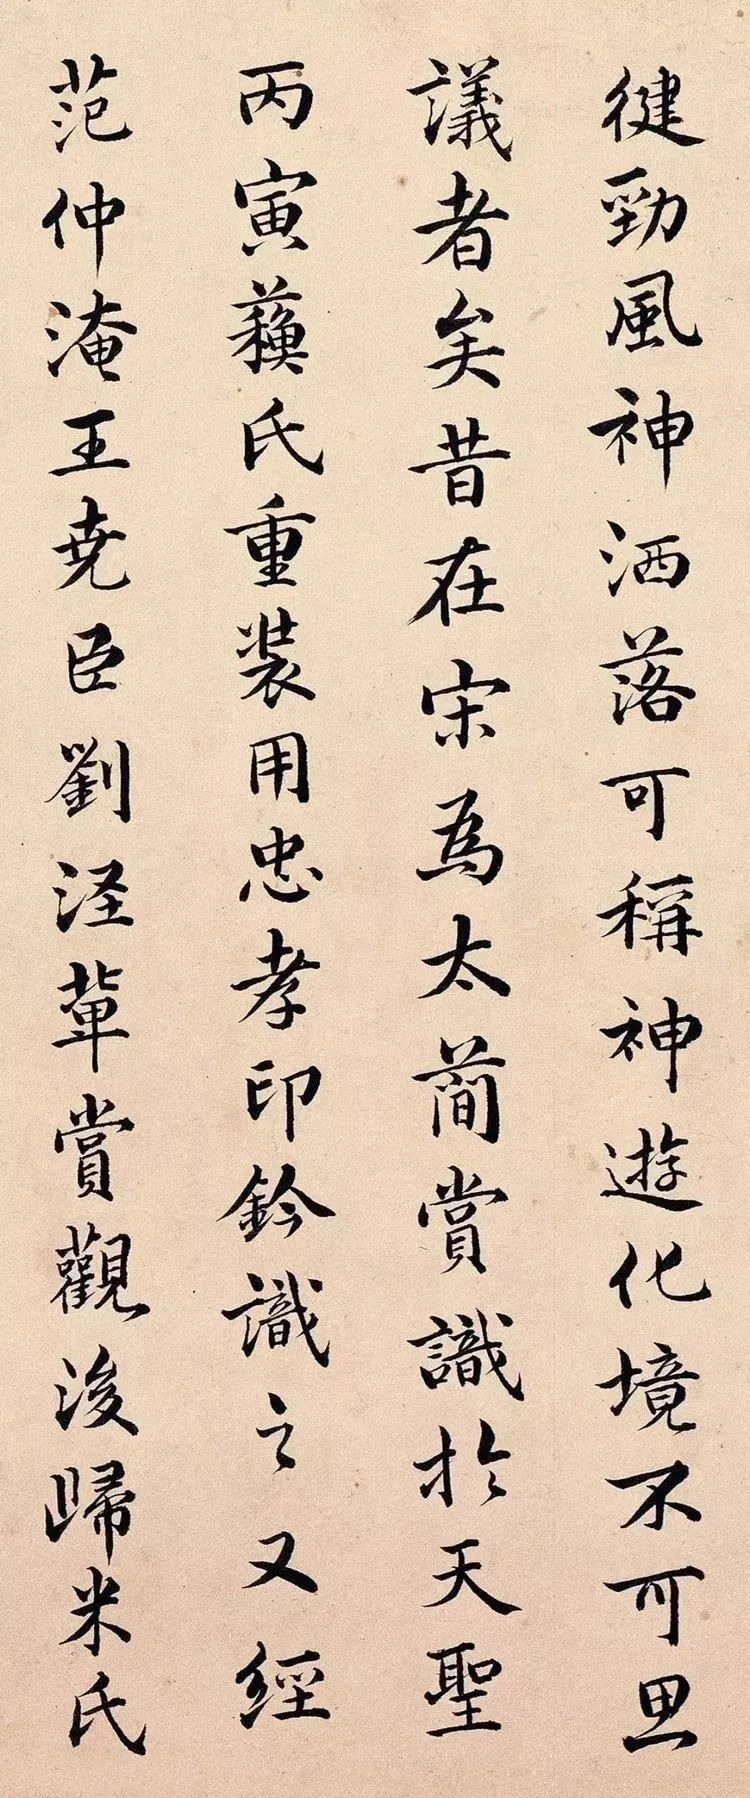 健勁風神洒落可稱神遊化境不可思
議者矣昔在宋為太簡賞識於天聖
丙寅蘓氏重裝用忠孝印鈐識之又經
范仲淹王尭臣劉涇軰賞觀後歸米氏